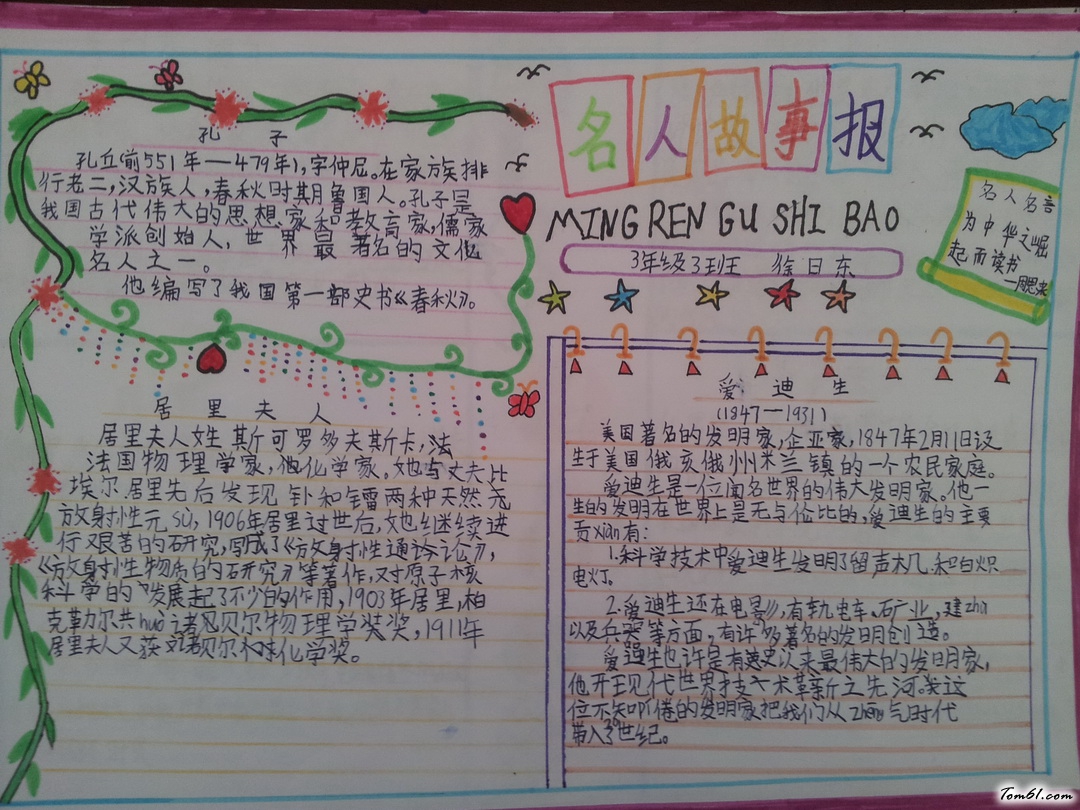 孔 子
孔丘(前551年—479年),字仲尼。在家族排
行老二,汉族人,春秋时期鲁国人。孔子是
我国古代伟大的思想家和教育家,儒家
学派创始人,世界最著名的文化
名人之一。
他编写了我国第一部史书《春秋》。
居里夫人
居里夫人姓斯可罗多夫斯卡,法
法国物理学家,他化学家。她与丈夫比
埃尔居里先后发现钋和镭两种天然无
放射性元sù,1906年居里过世后,她继续进
行艰苦的研究,写成了《放射性通论》,
《放射性物质的研究》等著作,对原子核
科学的发展起了不少的作用,1903年居里,柏
克勒尔共huò诺贝尔物理学奖奖,1911年
居里夫人又获诺贝尔化学奖。
名人故事报
MING REN GU SHI BAO
3年级3班 徐日东
名人名言
为中华之崛
起而读书
—周恩来
爱迪生
(1847—1931)
美国著名的发明家,企业家,1847年2月11日诞
生于美国俄亥俄州米兰镇的一个农民家庭。
爱迪生是一位闻名世界的伟大发明家。他一
生的发明在世界上是无与伦比的,爱迪生的主要
贡xiàn有:
1.科学技术中爱迪生发明了留声机,和白炽
电灯。
2.爱迪生还在电影,有轨电车、矿业,建zhù
以及兵器等方面,有许多著名的发明创造。
爱迪生也许是有史以来最伟大的发明家,
他开现代世界技术革新之先河。关这
位不知疲倦的发明家把我们从zhēng气时代
带入了世纪。
Tom61.com